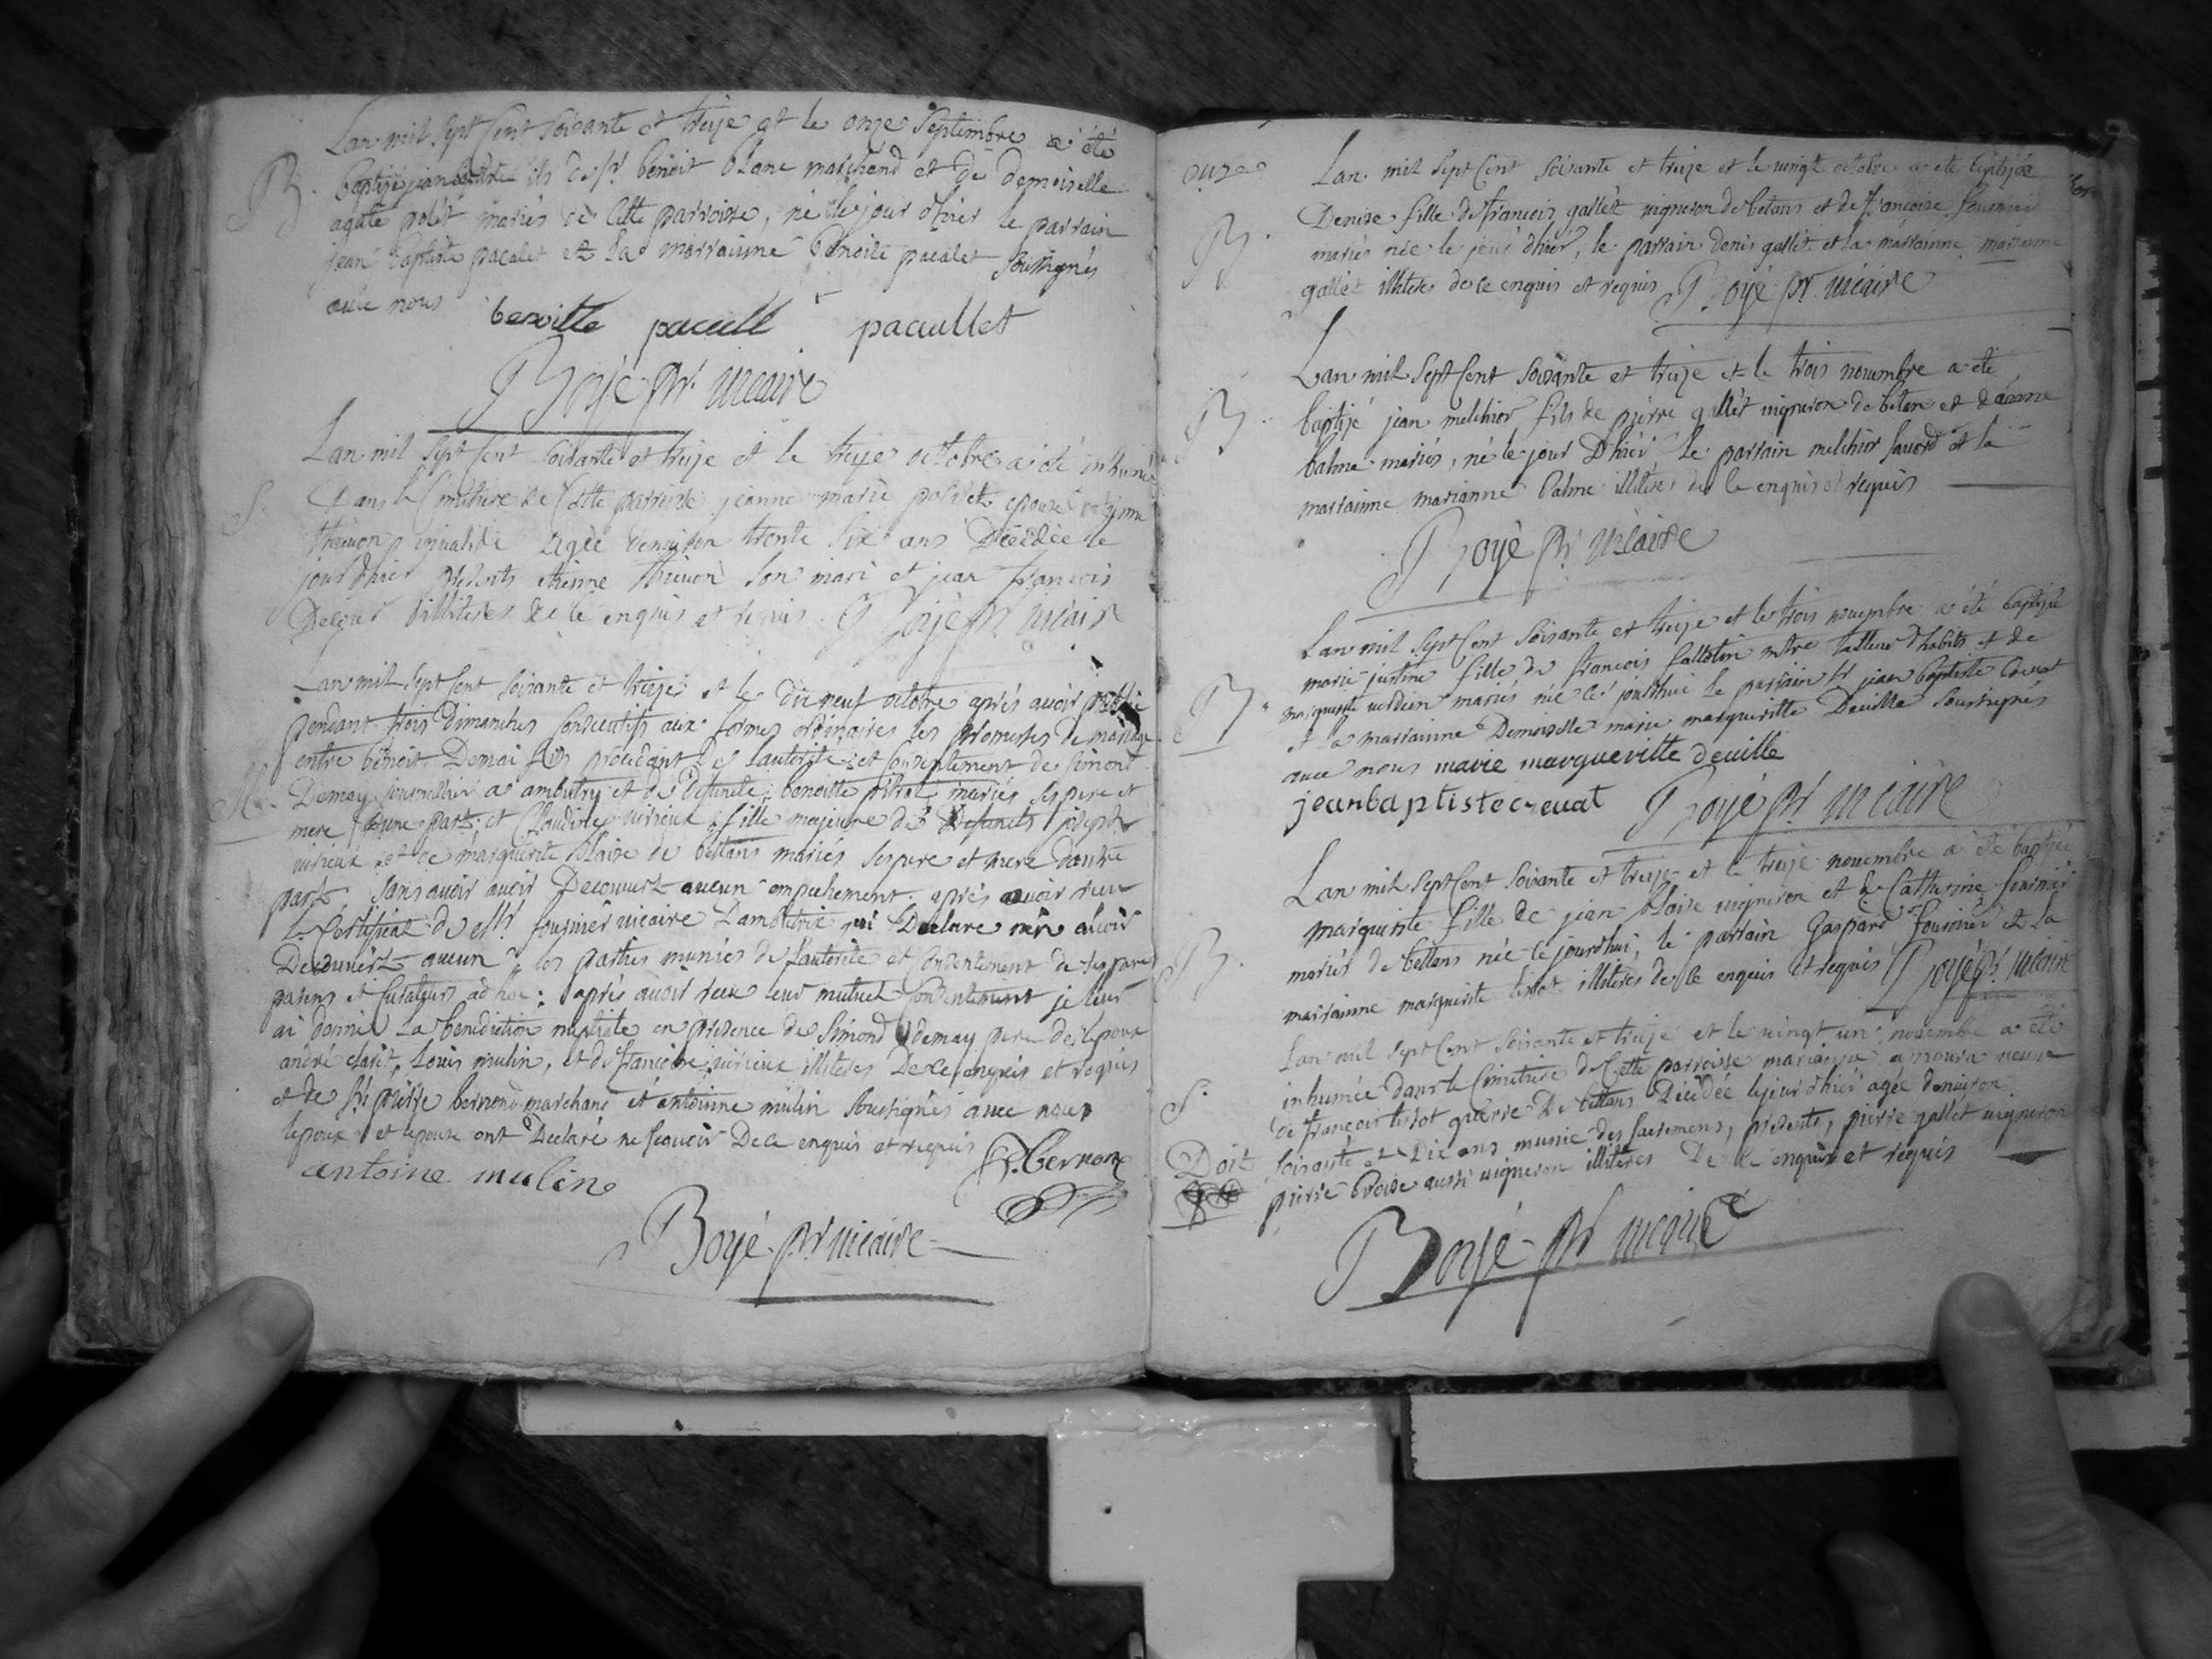 Lan mil sept Cent soixante et treize et le onze septembre a été
B. baptisé jean fils de sr benoit blanc marchand et de demoiselle
agate polet mariés de cette parroisse, né le jour d'hier le parrain
jean baptiste pacalet et la marrainne benoite pacalet soussignés
avec nous
benoitte pacall pacaullet
Boyé pr. vicaire
Lan mil sept Cent soixante et treize et le treize octobre a été inhumé
S. dans le Cimetiere de Cette parroisse jeanne marie epouse
thevenon invalide agée denviron trente six ans Décédée le
jour d'hier presents etienne thevenon son mari et jean françois
illiteres de ce enquis et requis. Boyé pr. vicaire
Lan mil sept Cent soixante et treize et le dix neuf octobre après avoir publié
pendant trois dimanches Consecutifs aux formes ordinaires les promesses de mariage
entre benoit Demai fils procedant de l'autorité et Consentement de simond
M. Demay journallier a ambutry et de defunte benoitte mariés ses pere et
mere d'une part; et Claudine virieux fille majeure de defunts joseph
virieux et de marguerite blaise de bettans mariés ses pere et mere d'autre
part, sans avoir avoir Decouvert aucun empechement. après avoir veu
le Certificat de Mr. fournier vicaire Dambutrix qui Declare n'en avoir
Decouvert aucun les parties munies de l'autorité et Consentement de ses
parens et Curateurs ad hoc; après avoir receu leur mutuel Consentement je leur
ai donné la benediction nuptiale en presence de Simond demay pere de l'epoux
andré clait, Louis mulin, et de françois virieux illiteres De ce enquis et requis
et de sr. pierre bernond marchand et antoinne mulin soussignés avec nous
l'epoux et l'epouse ont Declaré ne scavoir De ce enquis et requis
antoine mulin P. bernond
Boyé pr vicaire
onze Lan mil sept Cent soixante et treize et le vingt octobre a été baptisée
Denise fille de françois gallet vigneron de betans et de françoise fournier
B. mariés née le jour d'hier, le parrain denis gallet et la marrainne marianne
gallet illiteres de ce enquis et requis Boyé pr. vicaire
Lan mil sept Cent soixante et treize et le trois novembre a été
B. baptisé jean melchior fils de pierre gallet vigneron de betan et d'anne
balme mariés, né le jour D'hier le parrain melchior et la
marrainne marianne balme illiteres de ce enquis et requis
Boyé pr vicaire
Lan mil sept Cent soixante et treize et le trois novembre a été baptisée
marie justine fille de françois tailleur d'habits et de
B. marguerite verdien mariés née ce jourd'hui le parrain sr jean baptiste crevat
et la marrainne Demoiselle marie marguerite Deville soussignés
avec nous marie marguerite deville
jean baptiste crevat Boyé pr vicaire
Lan mil sept Cent soixante et treize et le treize novembre a été baptisée
marguerite fille de jean blaise vigneron et de Catherine fournier
B. mariés de bettans née ce jourd'hui, le parrain gaspard fournier et la
marrainne marguerite tissot illiteres de ce enquis et requis Boyé pr. vicaire
Lan mil sept Cent soixante et treize et le vingt un novembre a été
inhumée dans le Cimetiere de Cette parroisse marianne veuve
S. de françois tissot De bettans Décédée le jour d'hier agée denviron
Doit soixante et Dix ans munie des sacremens, presents, pierre gallet vigneron
pierre aussi vigneron illiteres De ce enquis et requis
Boyé pr vicaire